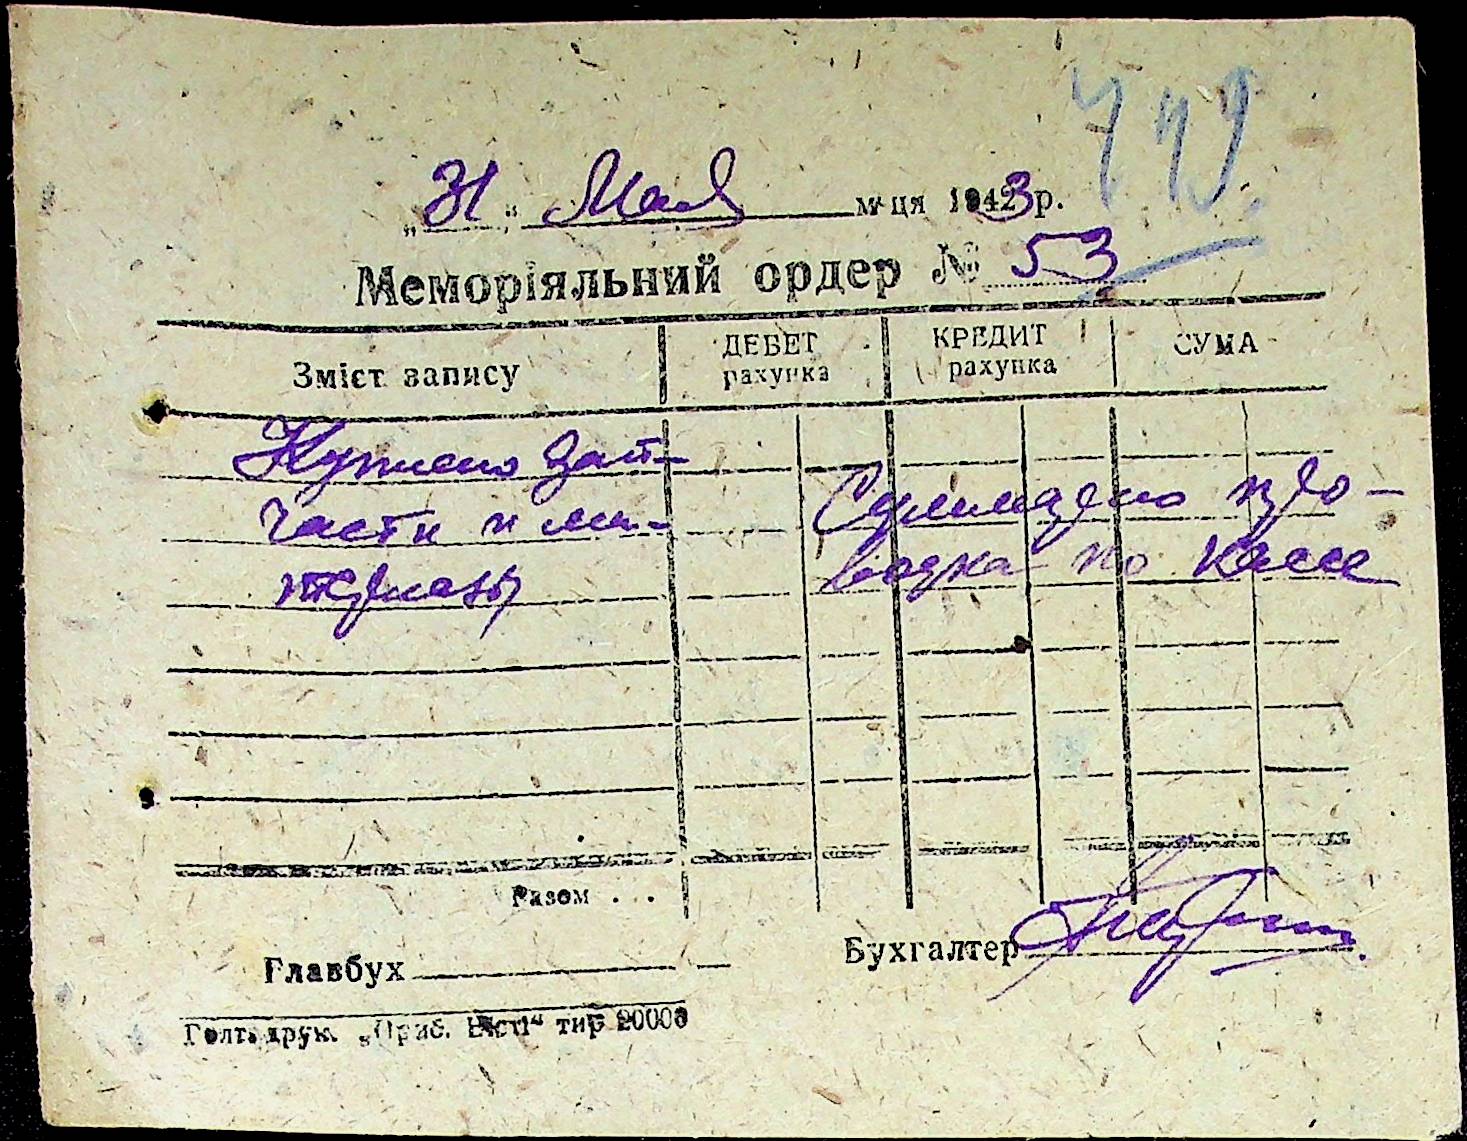 719.
„31“ Мая м-ця 1943 р.
Меморіяльний ордер № 53
Зміст запису ДЕБЕТ рахунка КРЕДИТ рахунка СУМА
Куплено зап-
части и ма-
териалы
проводка по кассе
Разом . . .
Главбух Бухгалтер
Голт. друк. „Приб. Вісті“ тир 20000